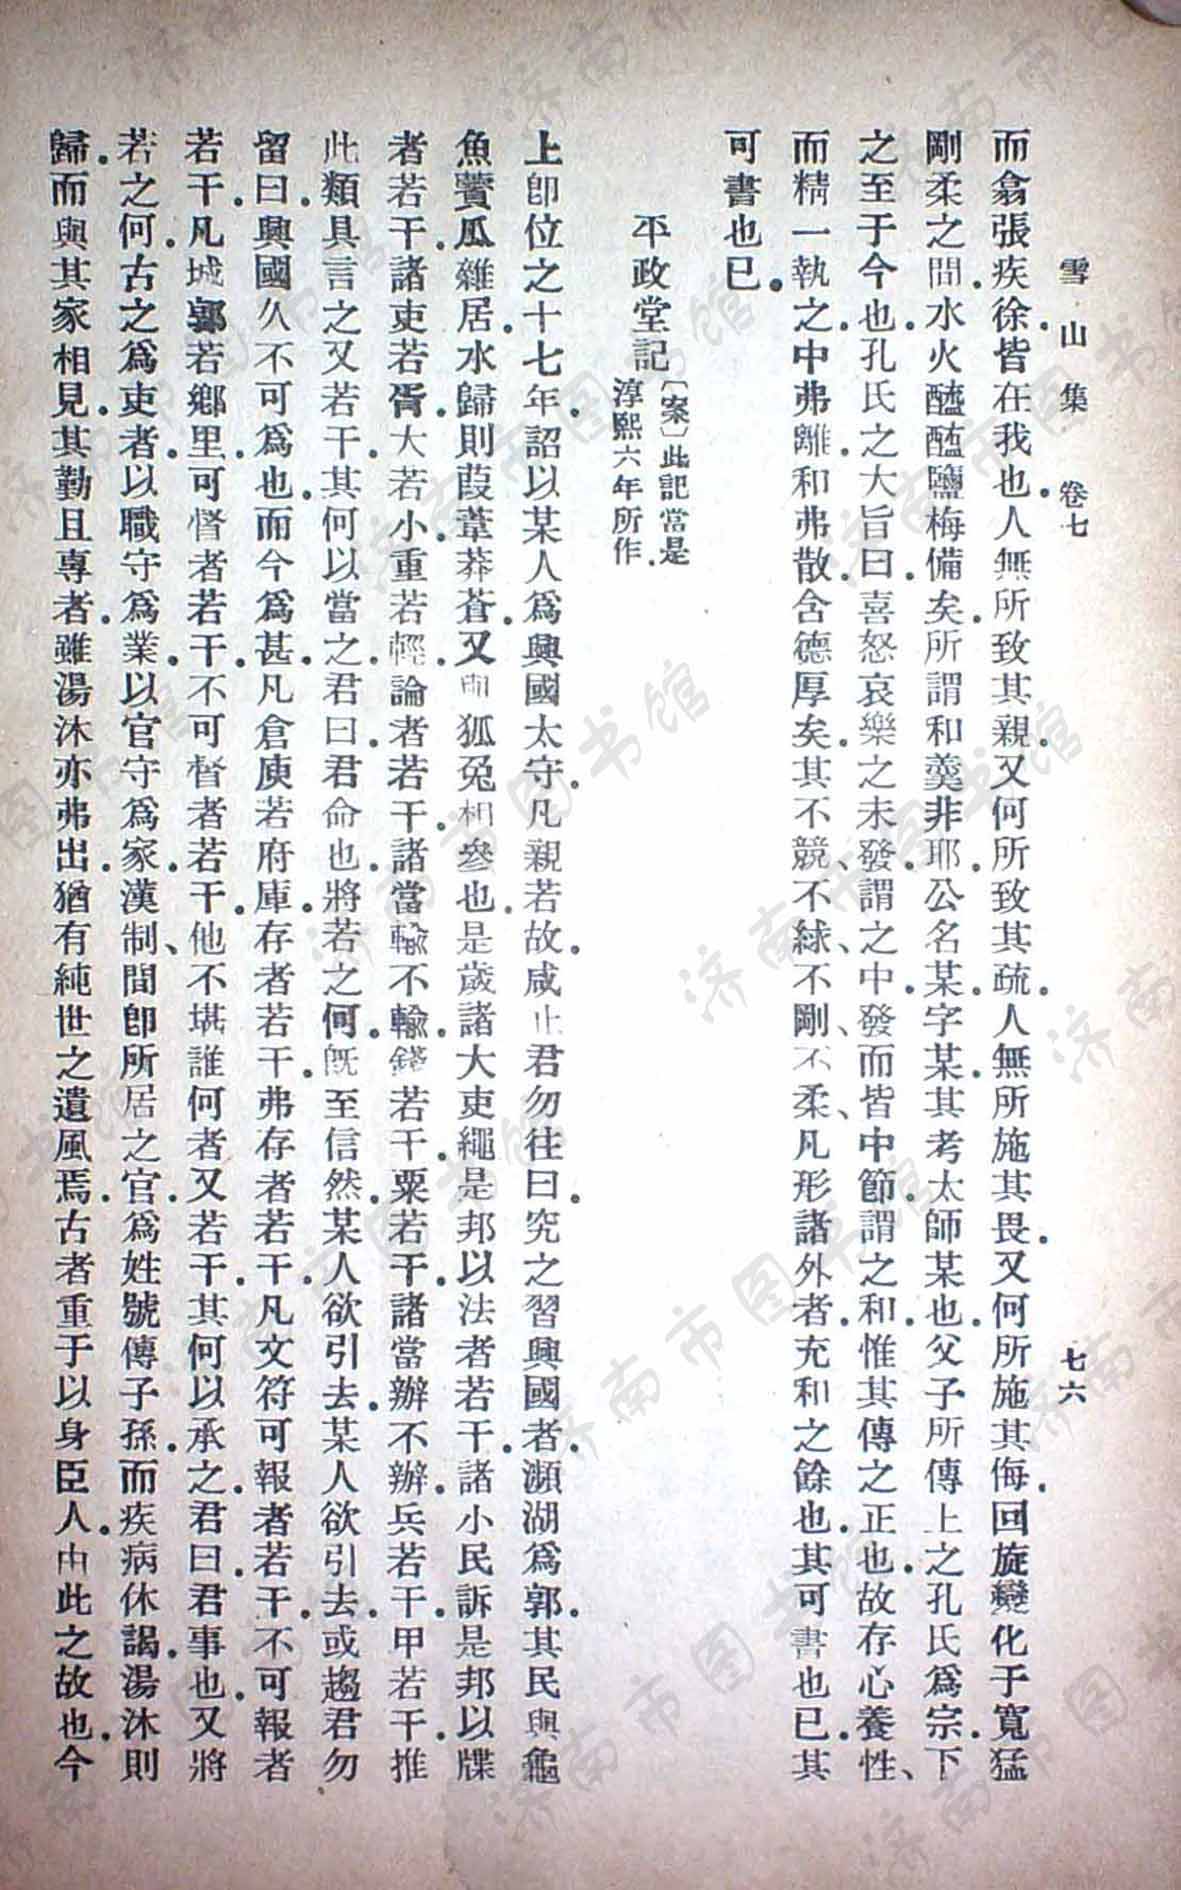 雪山集 卷七 七六
而翕張疾徐皆在我也人無所致其親又何所致其疏人無所施其畏又何所施其侮回旋變化于寬猛
剛柔之間水火醯醢鹽梅備矣所謂和羹非耶公名某字某其考太師某也父子所傳上之孔氏爲宗下
之至于今也孔氏之大旨曰喜怒哀樂之未發謂之中發而皆中節謂之和惟其傳之正也故存心養性、
而精一執之中弗離和弗散含德厚矣其不競、不絿、不剛、不柔、凡形諸外者充和之餘也其可書也已其
可書也已
平政堂記〔案〕此記當是
淳熙六年所作
上卽位之十七年詔以某人爲興國太守凡親若故咸止君勿往曰究之習興國者瀕湖爲郭其民與龜
魚鼈瓜雜居水歸則葭葦莽蒼又與狐兔相參也是歲諸大吏繩是邦以法者若干諸小民訴是邦以牒
者若干諸吏若胥大若小重若輕論者若干諸當輸不輸錢若干粟若干諸當辦不辦兵若干甲若干推
此類具言之又若干其何以當之君曰君命也將若之何旣至信然某人欲引去某人欲引去或趨君勿
留曰興國久不可爲也而今爲甚凡倉庾若府庫存者若干弗存者若干凡文符可報者若干不可報者
若干凡城郭若鄉里可督者若干不可督者若干他不堪誰何者又若干其何以承之君曰君事也又將
若之何古之爲吏者以職守爲業以官守爲家漢制、間卽所居之官爲姓號傳子孫而疾病休謁湯沐則
歸而與其家相見其勤且專者雖湯沐亦弗出猶有純世之遺風焉古者重于以身臣人由此之故也今